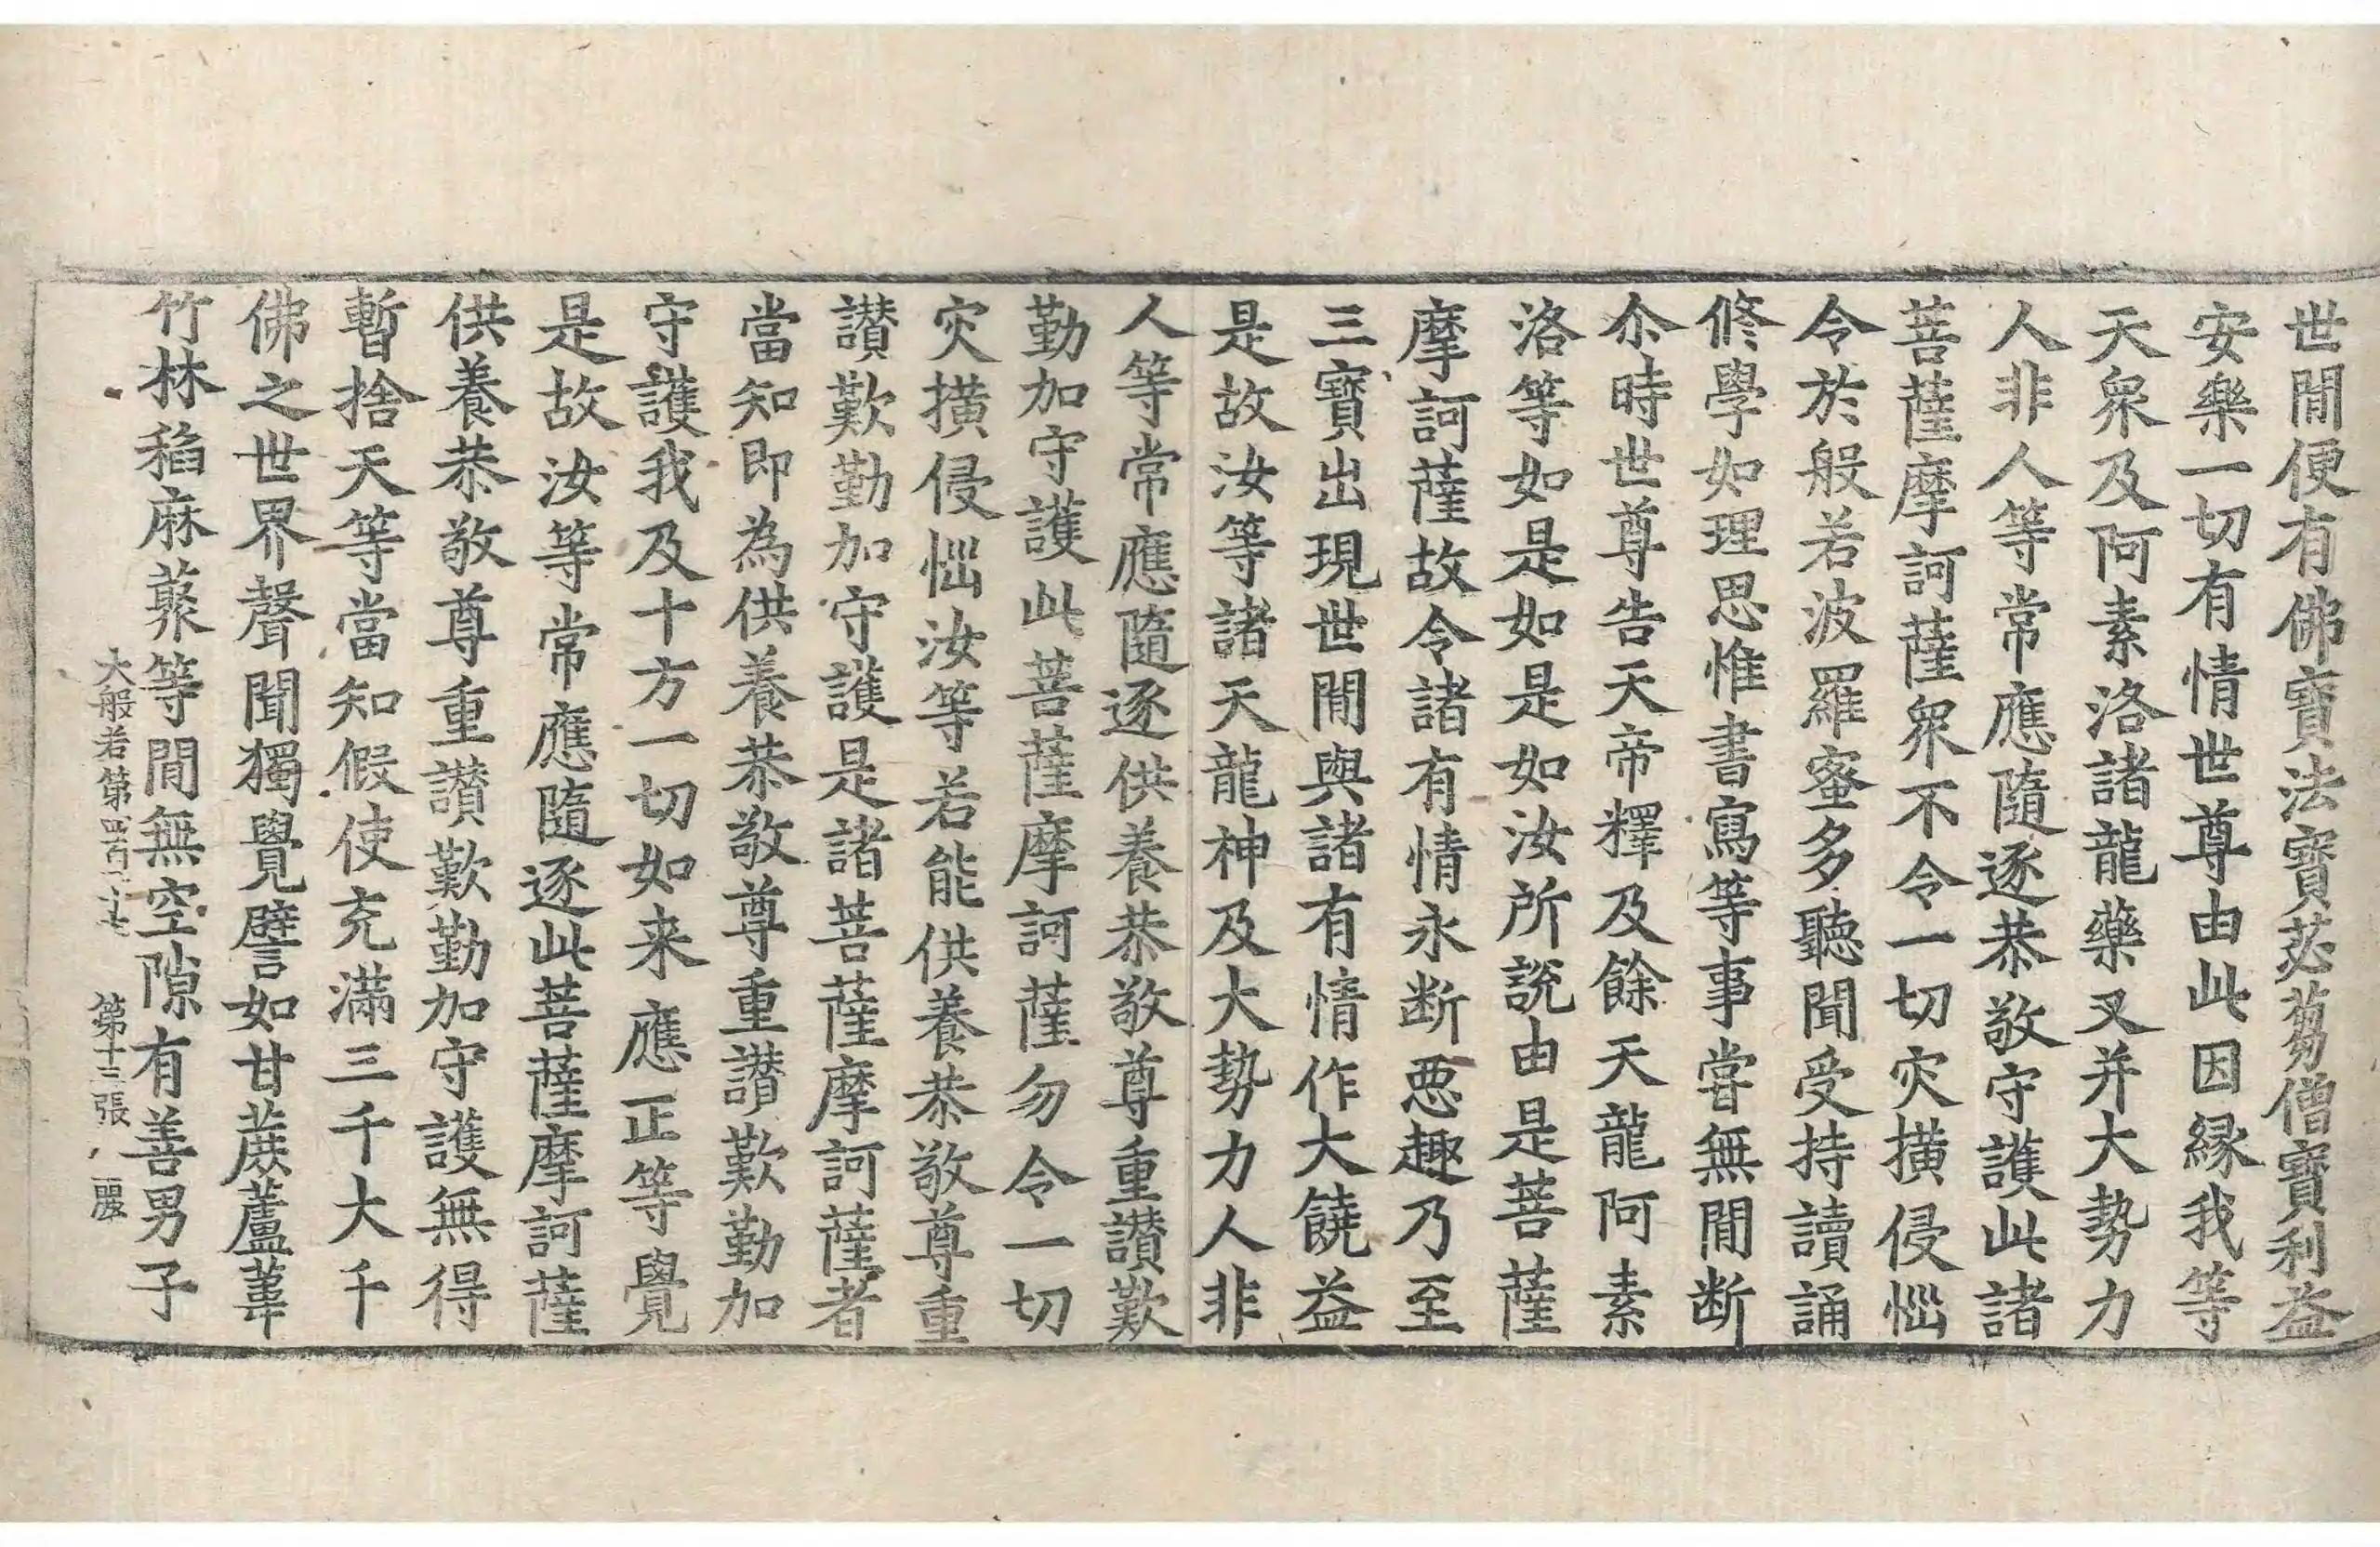 世間便有佛寶法寶苾芻僧寶利益
安樂一切有情世尊由此因緣我等
天衆及阿素洛諸龍藥叉并大勢力
人非人等常應隨逐恭敬守護此諸
菩薩摩訶薩衆不令一切灾撗侵惱
令於般若波羅蜜多聽聞受持讀誦
修學如理思惟書寫等事嘗無間断
尒時世尊告天帝釋及餘天龍阿素
洛等如是如是如汝所說由是菩薩
摩訶薩故令諸有情永断惡趣乃至
三寶出現世間與諸有情作大饒益
是故汝等諸天龍神及大勢力人非
人等常應隨逐供養恭敬尊重讃歎
勤加守護此菩薩摩訶薩勿令一切
灾撗侵惱汝等若能供養恭敬尊重
讃歎勤加守護是諸菩薩摩訶薩者
當知即為供養恭敬尊重讃歎勤加
守護我及十方一切如来應正等覺
是故汝等常應隨逐此菩薩摩訶薩
供養恭敬尊重讃歎勤加守護無得
暫捨天等當知假使充滿三千大千
佛之世界聲聞獨覺譬如甘蔗蘆葦
竹林稻麻䕺等間無空隙有善男子
大般若第四百二十七 第十三張 麗